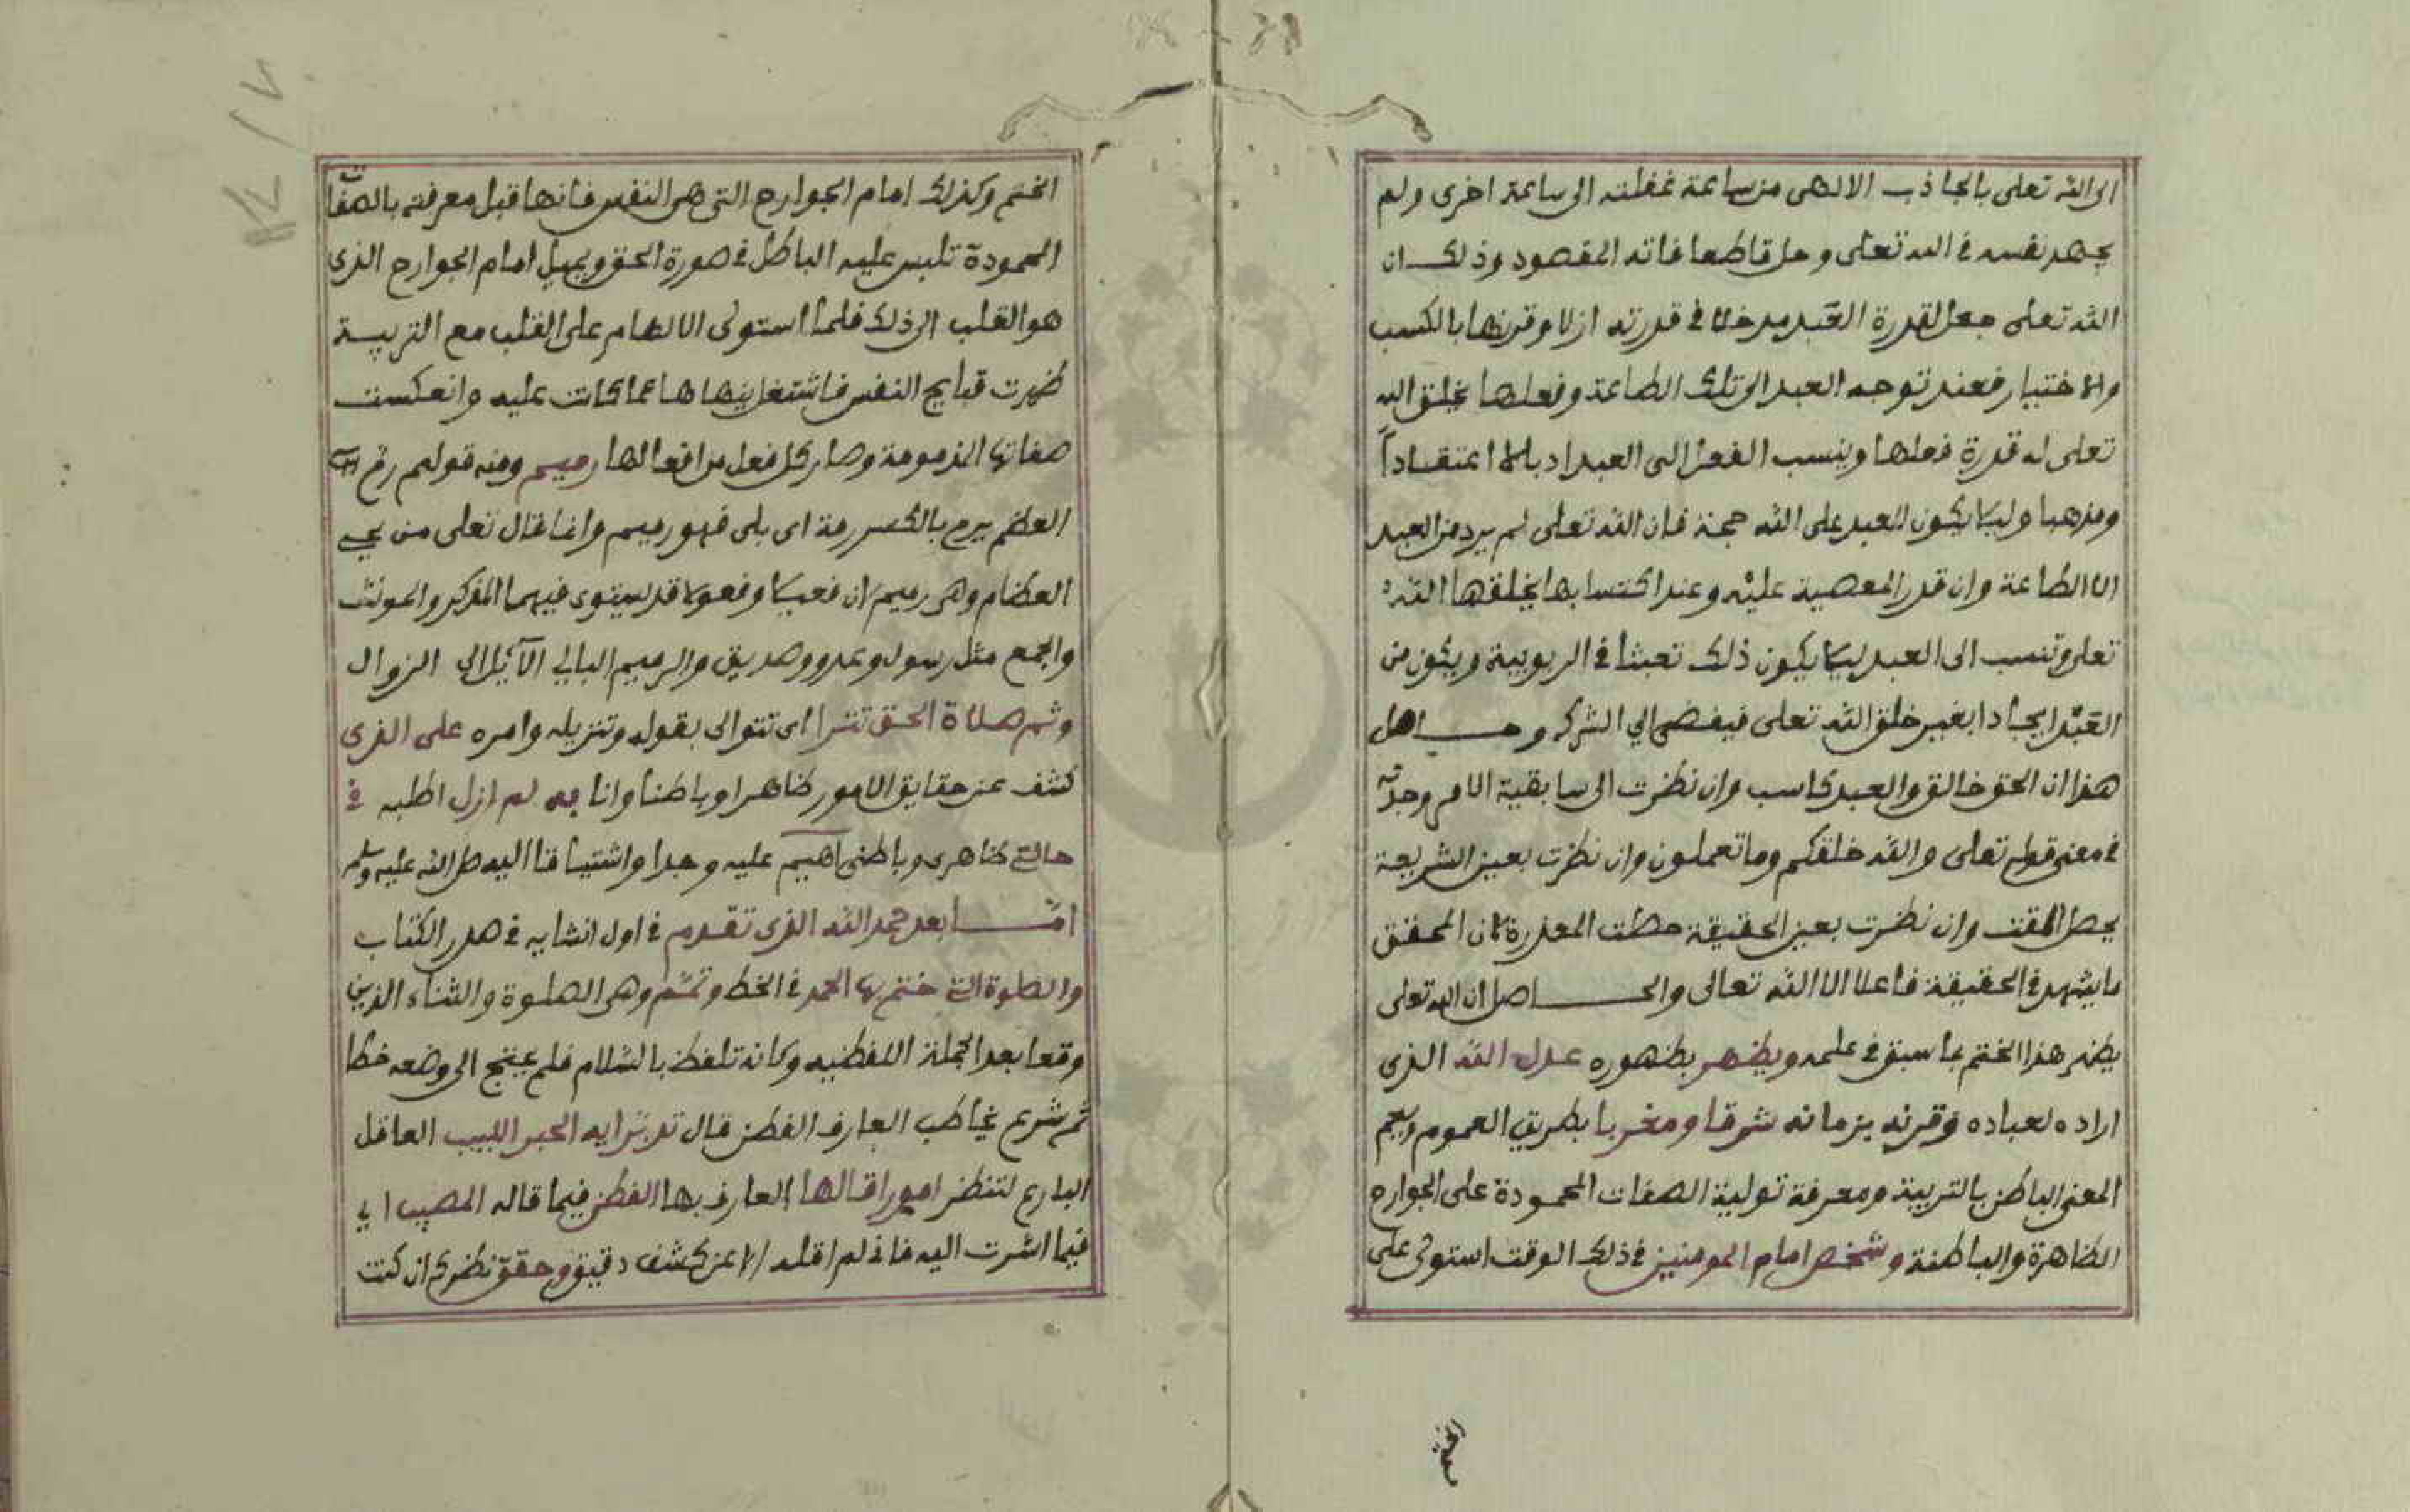 الى الله تعلى بالجاذب الالهى من ساعة غفلته الى ساعة اخرى ولم
يجهد نفسه فى الله تعلى وحل قاطعا فاته المقصود وذلك ان
الله تعلى جعل لقدرة العبد مدخلا فى قدرته ازلا وقرنها بالكسب
والاختيار فعند توجه العبد الى تلك الطاعة وفعلها يخلق الله
تعلى له قدرة فعلها وينسب الفعل الى العبد ادبا لا اعتقاداً
ومذهبا وليلا يكون للعبد على الله حجة فان الله تعلى لم يرد من العبد
الا الطاعة وان قدر المعصية عليه وعند اكتسابها يخلقها الله
تعلى وتنسب الى العبد ليلا يكون ذلك تعبثا فى الربوبية ويكون من
العبد ايجادا بغير خلق الله تعلى فيفضى الي الشرك وحاصل
هذا ان الحق خالق والعبد كاسب وان نظرت الى سابقية الامر وجدته
فى معنى قوله تعلى والله خلقكم وما تعملون وان نظرت بعين الشريعة
يحصل المقت وان نظرت بعين الحقيقة حصلت المعذرة لان المحقق
ما يشهد فى الحقيقة فاعلا الا الله تعالى والحاصل ان الله تعلى
يظهر هذا الختم بما سبق فى علمه ويظهر بظهوره عدل الله الذى
اراده لعباده وقرنه بزمانه شرقا ومغربا بطريق العموم
المعنى الباطن بالتربية ومعرفة تولية الصفات المحمودة على الجوارح
الظاهرة والباطنة وشخص امام المومنين فى ذلك الوقت استولى على
الختم
الختم وكذلك امام الجوارح التى هى النفس فانها قبل معرفته بالصفات
المحمودة تلبس عليه الباطل فى صورة الحق ويميل امام الجوارح الذى
هو القلب الى ذلك فلما استولى الالهام على القلب مع التربية
ظهرت قبايح النفس فاشتغل بنهاها عما كانت عليه وانعكست
صفاتها المذمومة وصار كل فعل من افعالها رميم ومنه قولهم رم
العظم يرم بالكسر رمة اى بلى فهو رميم وانما قال تعلى من يحيى
العظام وهى رميم لان فعيلا وفعولا قد يستوى فيهما المذكر والمونث
والجمع مثل رسول وعدو وصديق والرميم البالي الآئل الى الزوال
وثم صلاة الحق تترا اى تتوالى بقوله وتنزيله وامره على الذى
كشف عن حقايق الامور ظاهرا وباطنا وانا به لم ازل اطلبه فى
حالتى ظاهرى وباطنى اهيم عليه وجدا واشتياقا اليه صلى الله عليه وسلم
امّا بعد حمد الله الذى تقدم فى اول انشايه فى صدر الكتاب
والصلوة التى ختم بها الحمد فى الخط وتمّم وهى الصلوة والثناء الذين
وقعا بعد الجملة اللفظيه وكانه تلفظ بالسلام فلم يحتج الى وضعه خطا
ثم شرع يخاطب العارف الفطن قال تدبر ايه الحبر اللبيب العاقل
البارع لتنظر امورا قالها العارف بها الفطن فيما قاله المصيب اي
فيما اشرت اليه فانى لم اقله الا عن كشف دقيق وحقق نظرك ان كنت